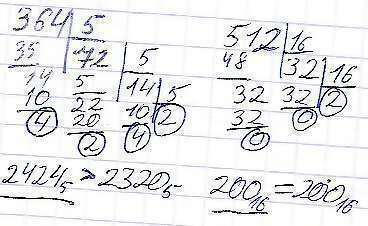 364 5 512 16
35 72 5 48 32 16
14 5 14 5 32 32 2
10 22 10 2 32 0
4 20 4 0
2
2424₅ > 2320₅ 200₁₆ = 200₁₆